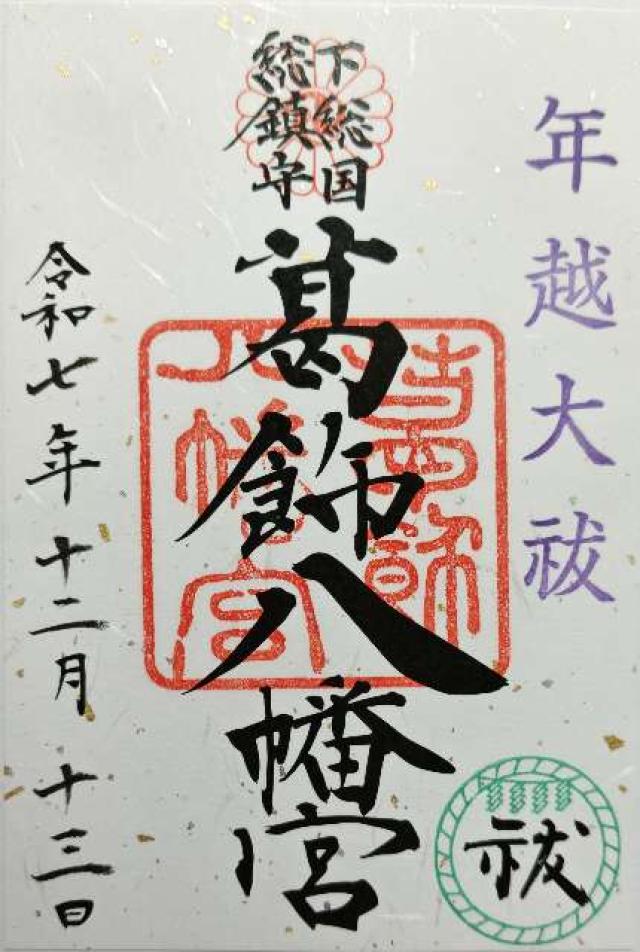 年越大祓
下総国
総鎮守
葛飾八幡宮
葛飾
八幡宮
令和七年十二月十三日
祓